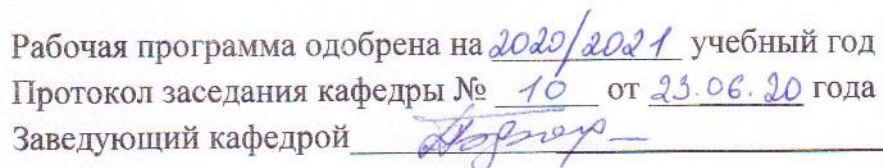 Рабочая программа одобрена на 2020/2021 учебный год
Протокол заседания кафедры № 10 от 23.06.20 года
Заведующий кафедрой